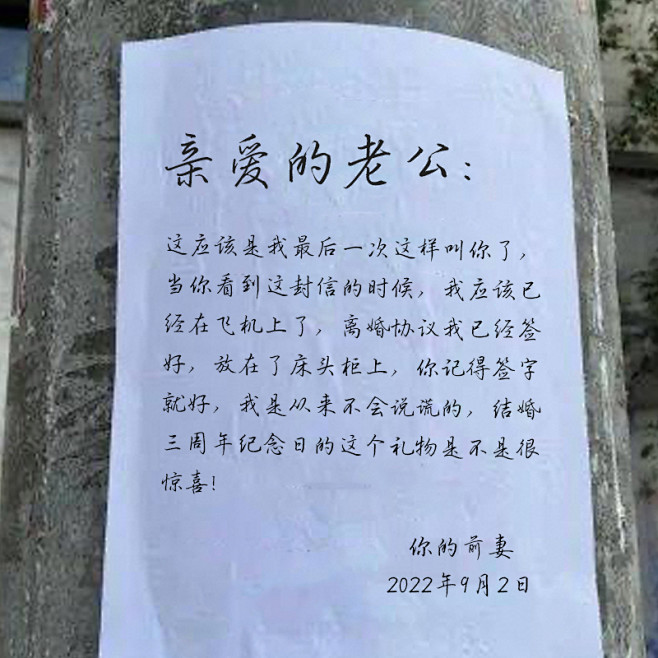 亲爱的老公：
这应该是我最后一次这样叫你了，
当你看到这封信的时候，我应该已
经在飞机上了，离婚协议我已经签
好，放在了床头柜上，你记得签字
就好，我是从来不会说谎的，结婚
三周年纪念日的这个礼物是不是很
惊喜！
你的前妻
2022年9月2日